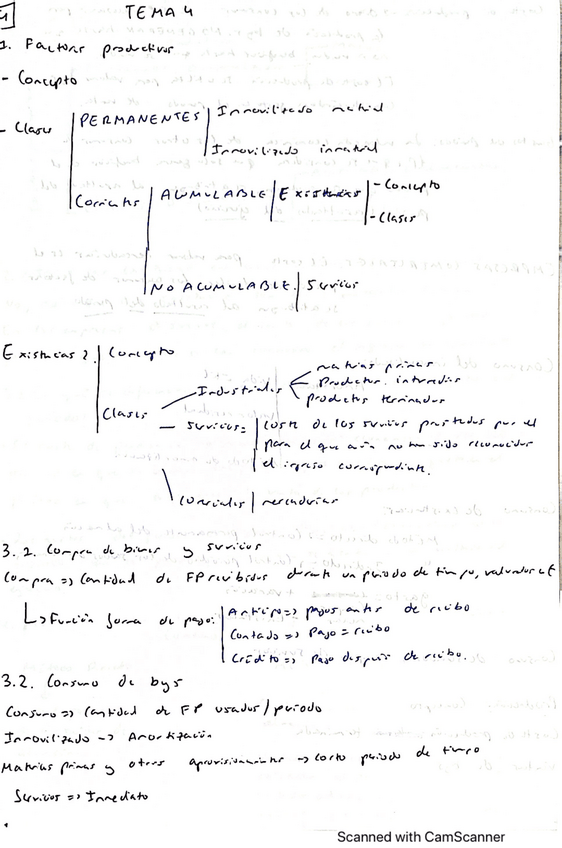 4 TEMA 4
1. Factores productivos
- Concepto
- Clases PERMANENTES Inmovilizado material
Inmovilizado inmaterial
Corrientes ACUMULABLE Existencias - Concepto
- Clases
NO ACUMULABLE Servicios
Existencias 2. Concepto
Clases Industriales materias primas
Productos intermedios
productos terminados
- Servicios = coste de los servicios prestados por el
para el que aún no han sido reconocidos
el ingreso correspondiente.
Comerciales mercaderías
3.1. Compra de bienes y servicios
Compra => Cantidad de FP recibidos durante un periodo de tiempo, valorados €
Función forma de pago: Anticipo => pagos antes de recibo
Contado => Pago = recibo
Crédito => Pago después de recibo.
3.2. Consumo de b y s
Consumo => Cantidad de FP usados / periodo
Inmovilizado -> Amortización
Materias primas y otros aprovisionamientos -> corto periodo de tiempo
Servicios => Inmediato
Scanned with CamScanner